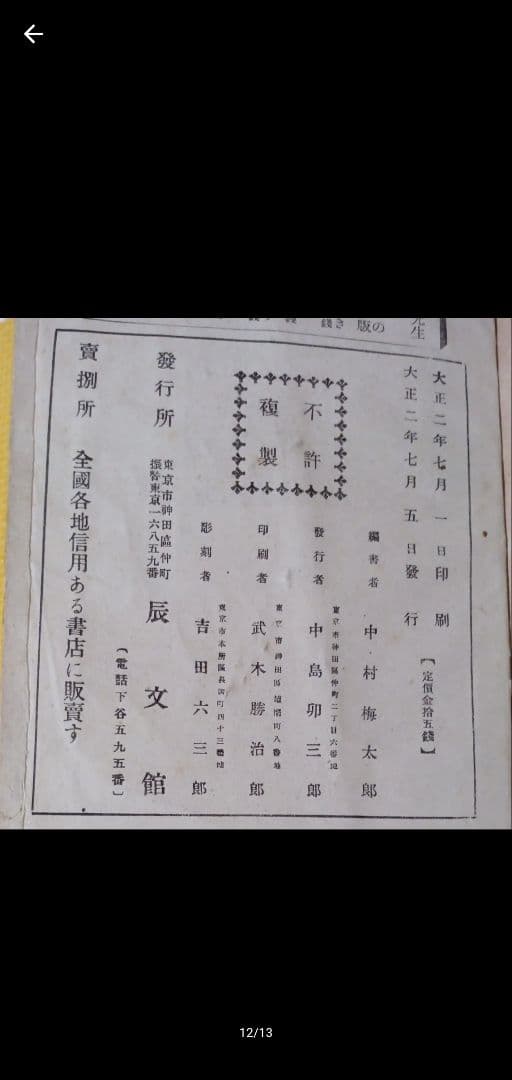 先生
の版
き錢
大正二年七月一日印刷
大正二年七月五日發行
【定價金拾五錢】
不許
複製
編書者 中村梅太郎
東京市神田區仲町二丁目六番地
發行者 中島卯三郎
印刷者 武木勝治郎
東京市本所區長岡町四十三番地
彫刻者 吉田六三郎
發行所
東京市神田區仲町
振替東京一六八五九番
辰文館
〔電話下谷五九五番〕
賣捌所 全國各地信用ある書店に販賣す
12/13